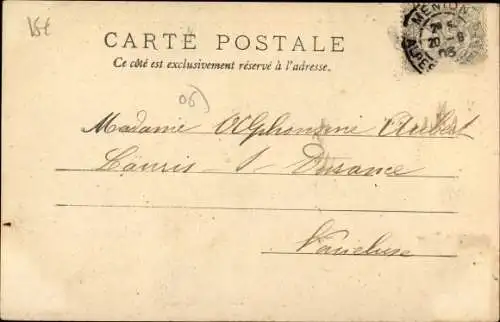 15€
CARTE POSTALE
Ce côté est exclusivement réservé à l'adresse.
MENTON
20 9
03
ALPES
06
Madame Alphonsine Aubert
Lauris - s - Durance
Vaucluse